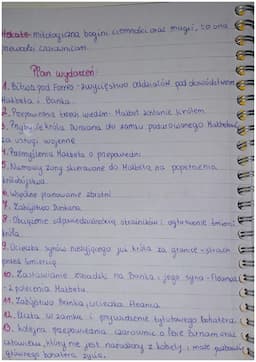 Hekate- mitologiczna bogini ciemności oraz magii, to ona
czarownicom.
Plan wydarzeń:
1. Bitwa pod Forres - zwycięstwo oddziałów pod dowództwem
Makbeta i Banka.
2. Przepowiednia trzech wiedźm: Makbet zostanie królem.
3. Przybycie króla Dunkana do zamku podarowanego Makbetowi
za usługi wojenne.
4. Rozmyślenia Makbeta o przepowiedni.
5. Namowy żony skierowane do Makbeta na popełnienie
królobójstwa.
6. Wspólne planowanie zbrodni.
7. Zabójstwo Dunkana.
8. Obciążenie odpowiedzialnością strażników i ogłoszenie śmierci
króla.
9. Ucieczka synów nieżyjącego już króla za granicę - strach
przed śmiercią.
10. Zastawianie zasadzki na Banka i jego syna - Fleance'a
z polecenia Makbeta.
11. Zabójstwo Banka, ucieczka Fleance'a.
12. Uczta w zamku i przywidzenie tytułowego bohatera.
13. Kolejna przepowiednia czarownic o lesie Birnam oraz
człowieku, który nie jest narodzony z kobiety i może pozbawić
głównego bohatera życia.